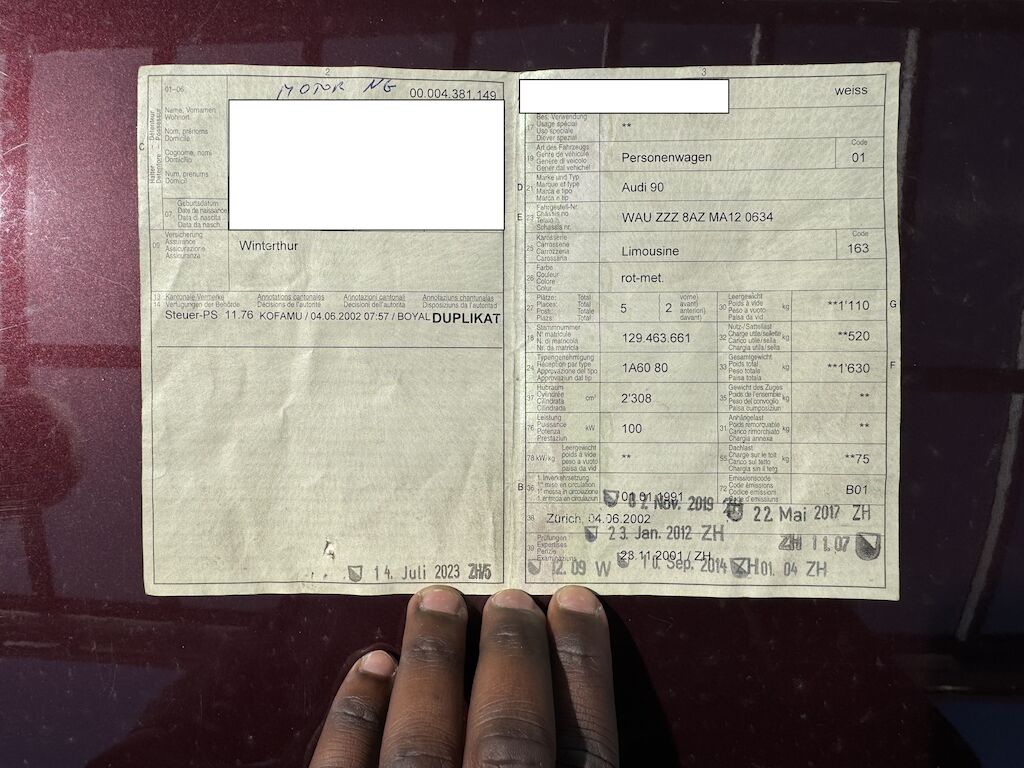 2
MOTOR NG
00.004.381.149
01-06
C
Halter Détenteur
Detentore Possessur
Name, Vornamen
Wohnort
Nom, prénoms
Domicile
Cognome, nomi
Domicilio
Num, prenums
Domicil
07
Geburtsdatum
Date de naissance
Data di nascita
Data da nasch.
09
Versicherung
Assurance
Assicurazione
Assicuranza
Winterthur
13
14
Kantonale Vermerke
Verfügungen der Behörde
Annotations cantonales
Décisions de l'autorité
Annotazioni cantonali
Decisioni dell'autorità
Annotaziuns chantunalas
Disposiziuns da l'autoritad
Steuer-PS 11.76 KOFAMU / 04.06.2002 07:57 / BOYAL DUPLIKAT
14. Juli 2023 ZH/5
3
weiss
17
Bes. Verwendung
Usage spécial
Uso speciale
Diever spezial
**
19
Art des Fahrzeugs
Genre de véhicule
Genere di veicolo
Gener dal vehichel
Personenwagen
Code
01
D
21
Marke und Typ
Marque et type
Marca e tipo
Marca e tip
Audi 90
E
23
Fahrgestell-Nr.
Châssis no
Telaio n.
Schassis nr.
WAU ZZZ 8AZ MA12 0634
25
Karosserie
Carrosserie
Carrozzeria
Carossaria
Limousine
Code
163
26
Farbe
Couleur
Colore
Colur
rot-met.
27
Plätze: Total
Places: Total
Posti: Totale
Plazs: Total
5
2
vorne)
avant)
anteriori)
davant)
30
Leergewicht
Poids à vide
Peso a vuoto
Paisa da vid
kg
**1'110
G
18
Stammnummer
N° matricule
N. di matricola
Nr. da matricla
129.463.661
32
Nutz-/Sattellast
Charge utile/sellette
Carico utile/sella
Chargia utila/sella
kg
**520
24
Typengenehmigung
Réception par type
Approvazione del tipo
Approvaziun dal tip
1A60 80
33
Gesamtgewicht
Poids total
Peso totale
Paisa totala
kg
**1'630
F
37
Hubraum
Cylindrée
Cilindrata
Cilindrada
cm³
2'308
35
Gewicht des Zuges
Poids de l'ensemble
Peso del convoglio
Paisa cumposiziun
kg
**
76
Leistung
Puissance
Potenza
Prestaziun
kW
100
31
Anhängelast
Poids remorquable
Carico rimorchiato
Chargia annexa
kg
**
78 kW/kg
Leergewicht
poids à vide
peso a vuoto
paisa da vid
**
55
Dachlast
Charge sur le toit
Carico sul tetto
Chargia sin il tetg
kg
**75
B
36
1. Inverkehrsetzung
1re mise en circulation
1a messa in circolazione
1. entrada en circulaziun
01.01.1991
72
Emissionscode
Code émissions
Codice emissioni
Code d'emissiuns
B01
Nov. 2019 ZH
22 Mai 2017 ZH
38
Zürich, 04.06.2002
23. Jan. 2012 ZH
ZH 11.07
39
Prüfungen
Expertises
Perizie
Examinaziuns
23.11.2001 / ZH
12.09 W
10. Sep. 2014 ZH
01. 04 ZH